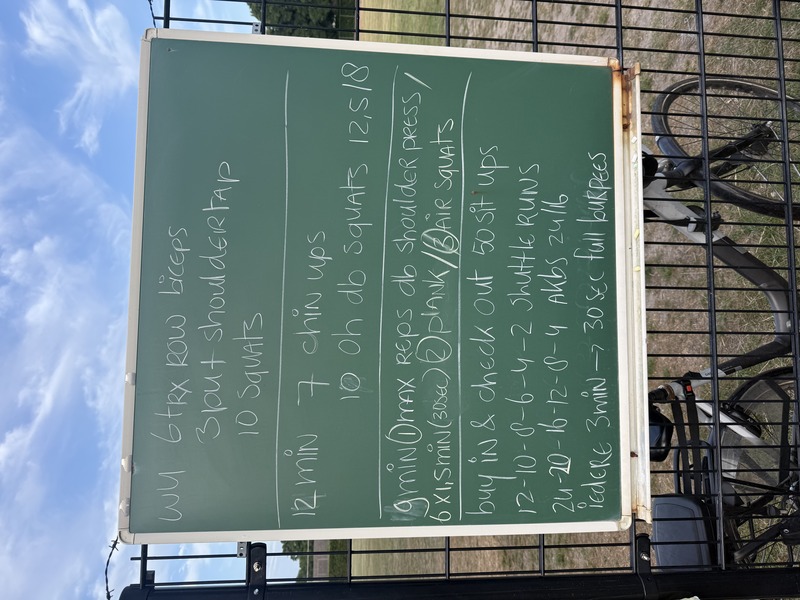 WU 6 TRX ROW biceps
3 put shouldertap
10 squats
12 min 7 chin ups
10 oh db squats 12,5/8
9 min ① max reps db shoulder press /
6 x 1,5 min (30sec) ② plank / ③ air squats
buy in & check out 50 sit ups
12-10-8-6-4-2 shuttle runs
24-20-16-12-8-4 AKBS 24/16
iedere 3 min → 30 sec full burpees